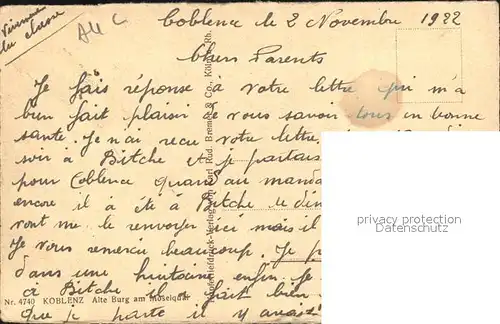 Coblence le 2 Novembre 1922
Chers Parents
Je fais réponse à votre lettre qui m'a
bien fait plaisir de vous savoir tous en bonne
santé. Je n'ai reçu votre lettre
soir à Bitche et je partais
pour Coblence quand au manda
encore il a été à Bitche le dim
vont me le renvoyer ici mais il
Je vous remercie beaucoup. Je p
dans une huitaine enfin je
à Bitche il fait bien
que je parte il y avais
Nr. 4740 KOBLENZ Alte Burg am Moselquai
Kupfertiefdruck-Verlag von Karl Rud. Bremer & Co., Köln a. Rh.
privacy protection
VDMedien24.de